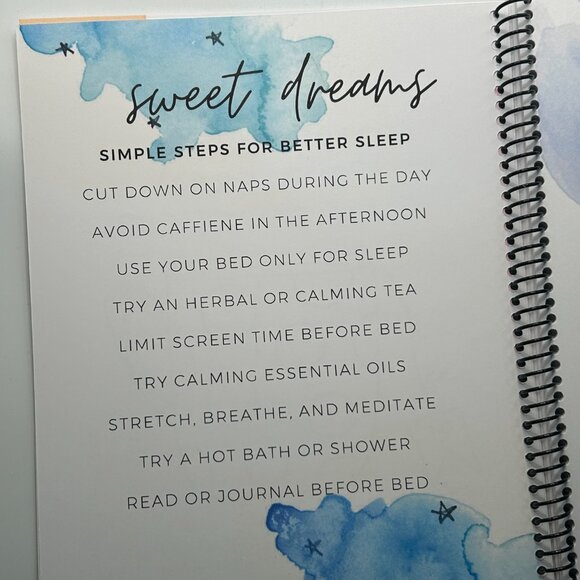 sweet dreams
SIMPLE STEPS FOR BETTER SLEEP
CUT DOWN ON NAPS DURING THE DAY
AVOID CAFFIENE IN THE AFTERNOON
USE YOUR BED ONLY FOR SLEEP
TRY AN HERBAL OR CALMING TEA
LIMIT SCREEN TIME BEFORE BED
TRY CALMING ESSENTIAL OILS
STRETCH, BREATHE, AND MEDITATE
TRY A HOT BATH OR SHOWER
READ OR JOURNAL BEFORE BED